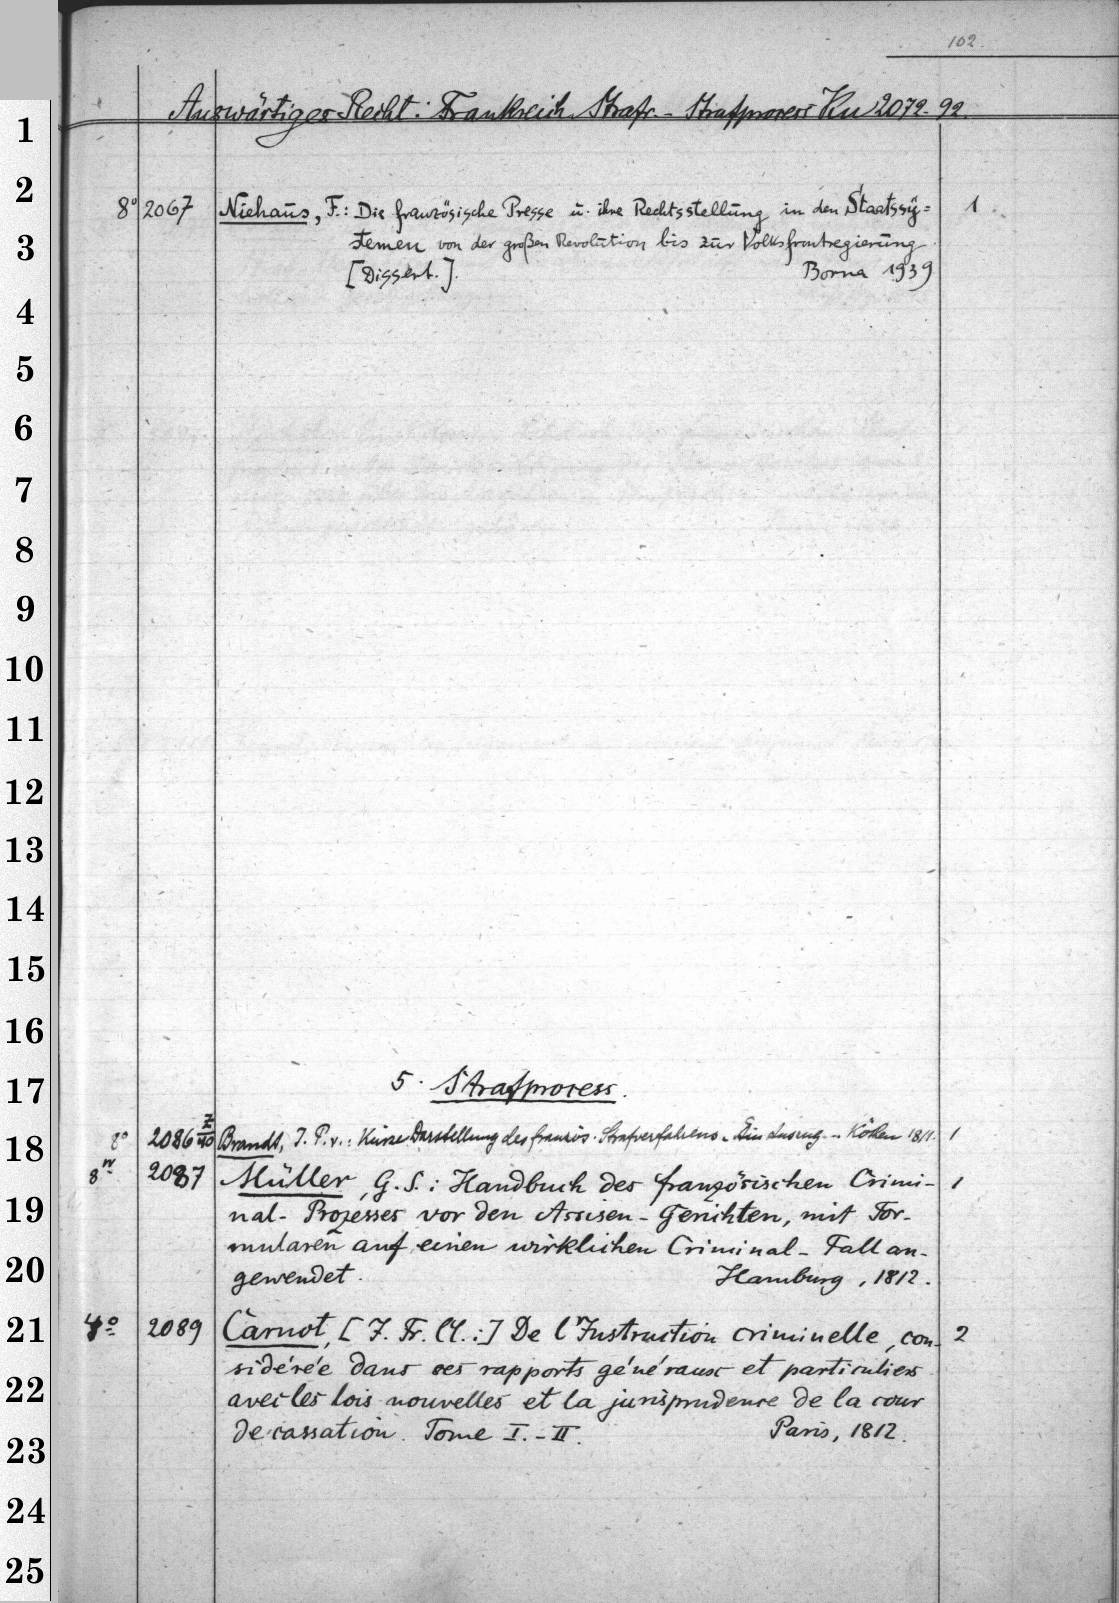 102.
Auswärtiges Recht: Frankreich Strafr. - Strafprocess Ku 2072-92.
8° 2067 Niehaus, F.: Die französische Presse u. ihre Rechtsstellung in den Staatssy= 1
stemen von der großen Revolution bis zur Volksfrontregierung
[Dissert.]. Borna 1939
5. Strafprocess.
8° 2086 Z/40 Brandt, J. P. v.: Kurze Darstellung des französ. Strafverfahrens. Ein Auszug. Köthen 1811. 1
8° 2087 Müller, G. S.: Handbuch des französischen Crimi- 1
nal- Prozesses vor den Assisen-Gerichten, mit For-
mularen auf einen wirklichen Criminal-Fall an-
gewendet. Hamburg, 1812.
4° 2089 Carnot, [J. Fr. Cl.:] De l'Instruction criminelle, con- 2
sidérée dans ses rapports généraux et particuliers
avec les lois nouvelles et la jurisprudence de la cour
de cassation. Tome I.-II. Paris, 1812.
1
2
3
4
5
6
7
8
9
10
11
12
13
14
15
16
17
18
19
20
21
22
23
24
25